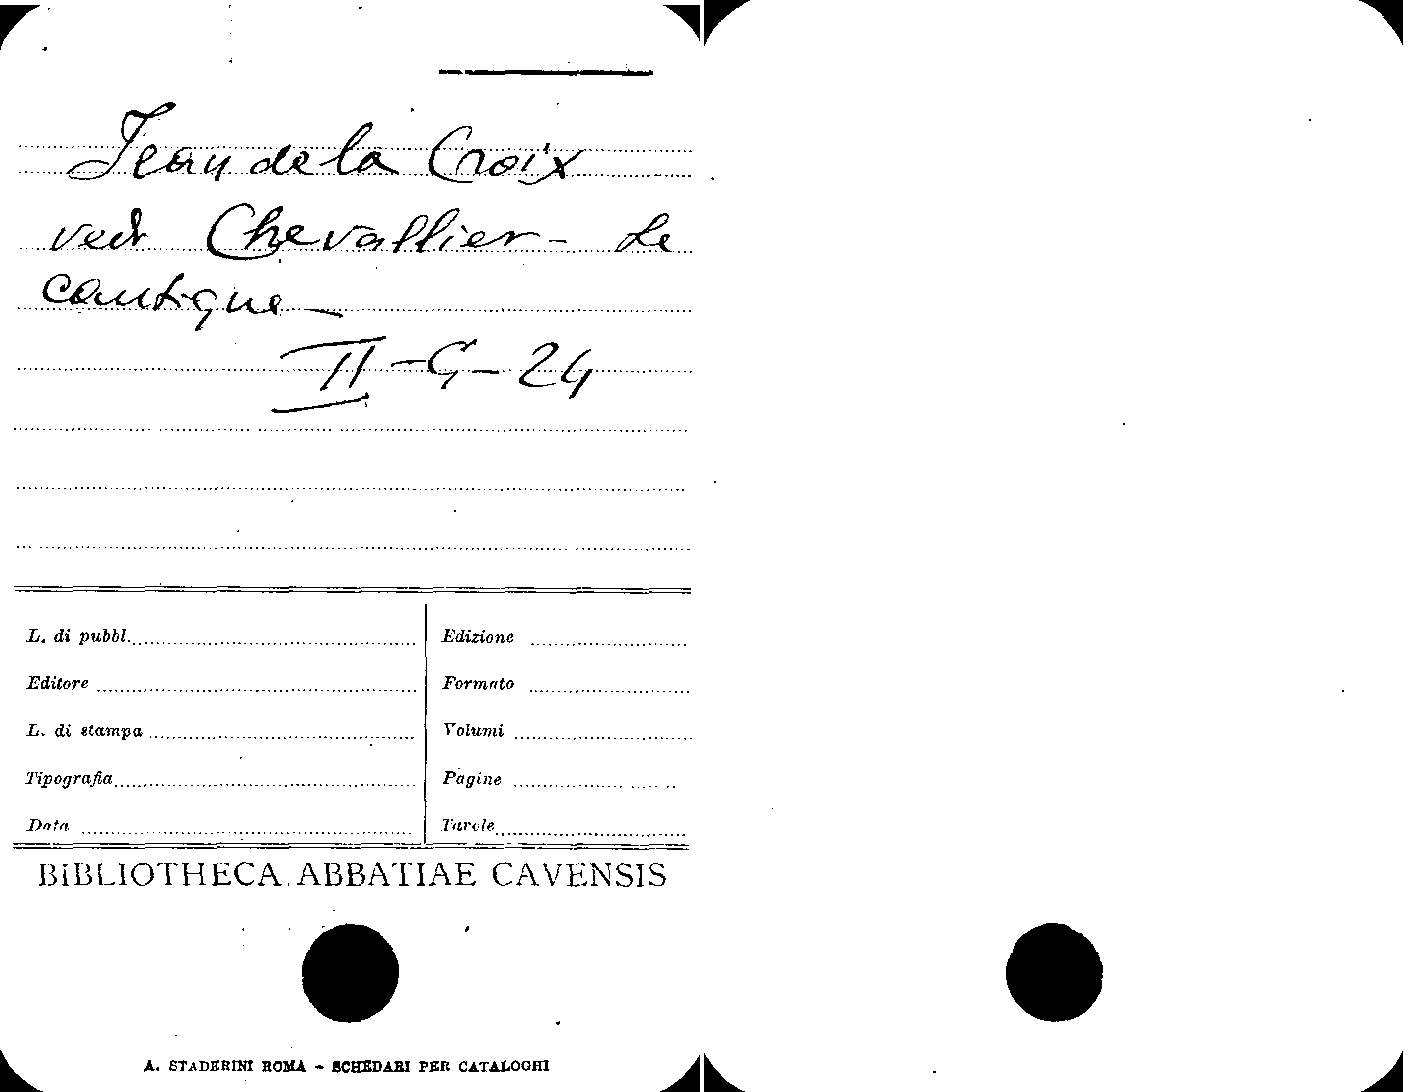 Jean de la Croix
vedi Chevallier - Le
cantique -
II - G - 24
L. di pubbl.
Edizione
Editore
Formato
L. di stampa
Volumi
Tipografia
Pagine
Data
Tavole
BIBLIOTHECA ABBATIAE CAVENSIS
A. STADERINI ROMA - SCHEDARI PER CATALOGHI